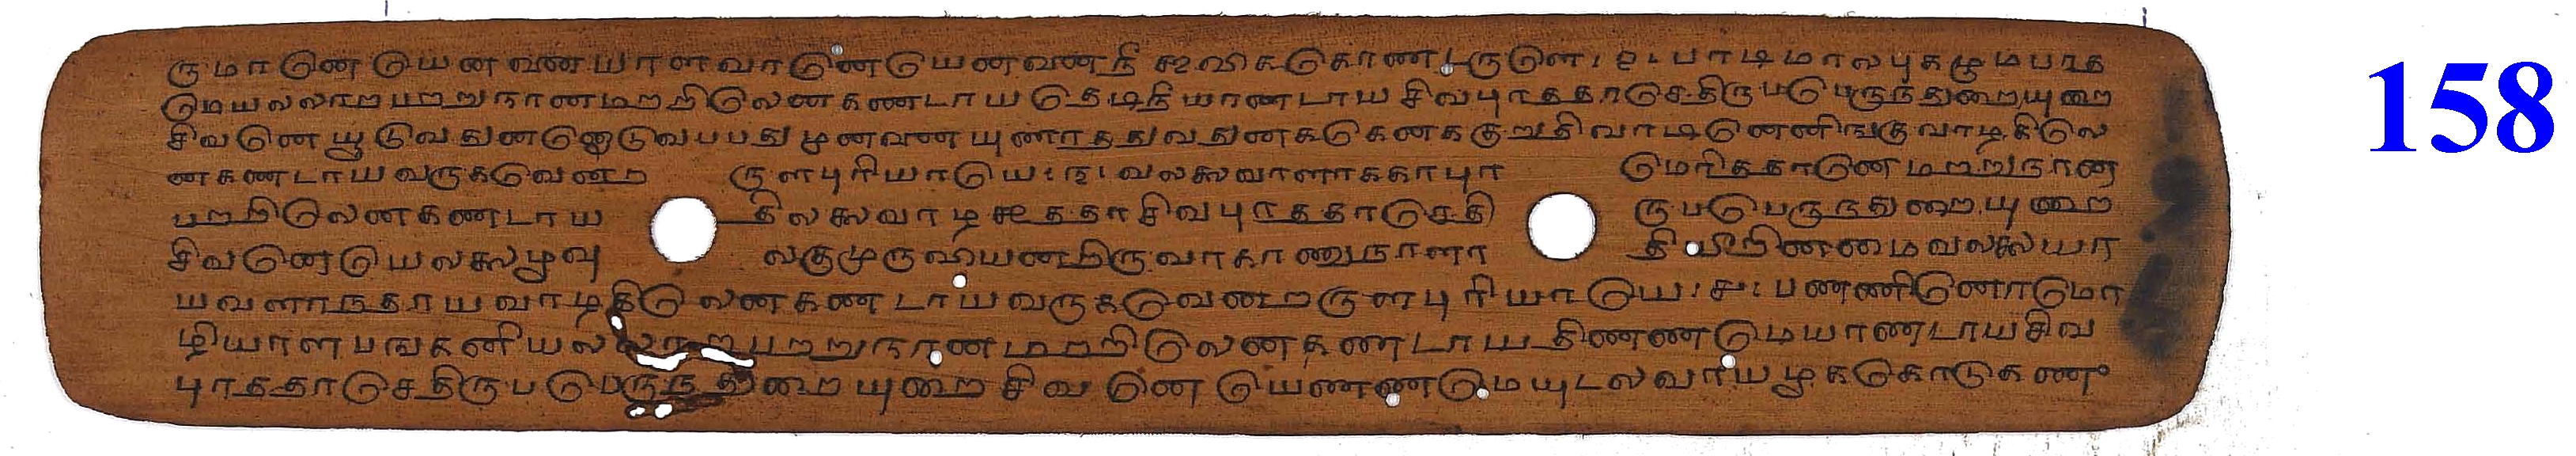 ருமானெயெனனையாளவானெயெனனைநீ கூவிககொணடருளெ।உ।பாடிமாலபுகழுமபாத
மெயலலாறபறறுநானமறறிலெனகணடாயதெடிநீயாணடாயசிவபுரததரசெதிருபபெருந்துறையுறை
சிவனெயூடுவதுனனொடுவபபதுமுனனையுணரததுவதுனககெனககுறுதிவாடினெனிஙகுவாழகிலெ
னகணடாயவருகவெனற ருளபுரியாயெ।௩।வலலைவாளரககரபுர மெரிததானெமறறுநான
பறறிலெனகணடாய திலலைவாழகூததாசிவபுரததரசெதி ருபபெருநதுறையுறை
சிவனெயெலலைமூவு லகுமுருவியனறிருவரகாணுநாளா தியீறினமைவலலையாய
யவளரநதாயவாழகிலெனகணடாயவருகவெனறருளபுரியாயெ।௪।பணணினெரமொ
ழியாளபஙகனியலலாறபறறுநானமறறிலெனகணடாயதிணணமெயாணடாயசிவ
புரததரசெதிருபபெருநதுறையுறைசிவனெயெணணமெயுடலவாயமூககொடுகண